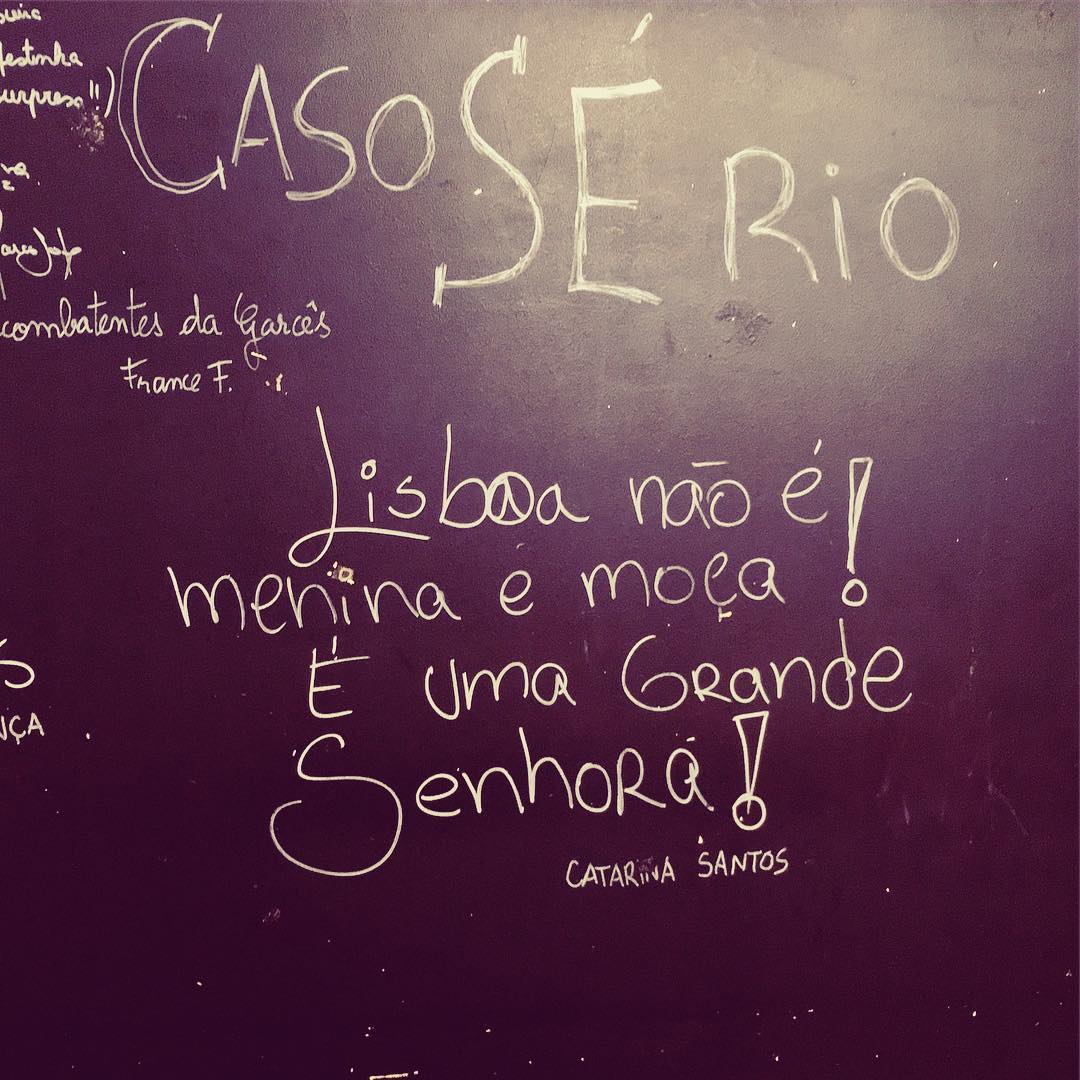 festinha
surpresa!!)
CASO SÉRIO
combatentes da Garcês
France F.
Lisboa não é!
menina e moça
É uma GRande
SenhoRa!
CATARINA SANTOS